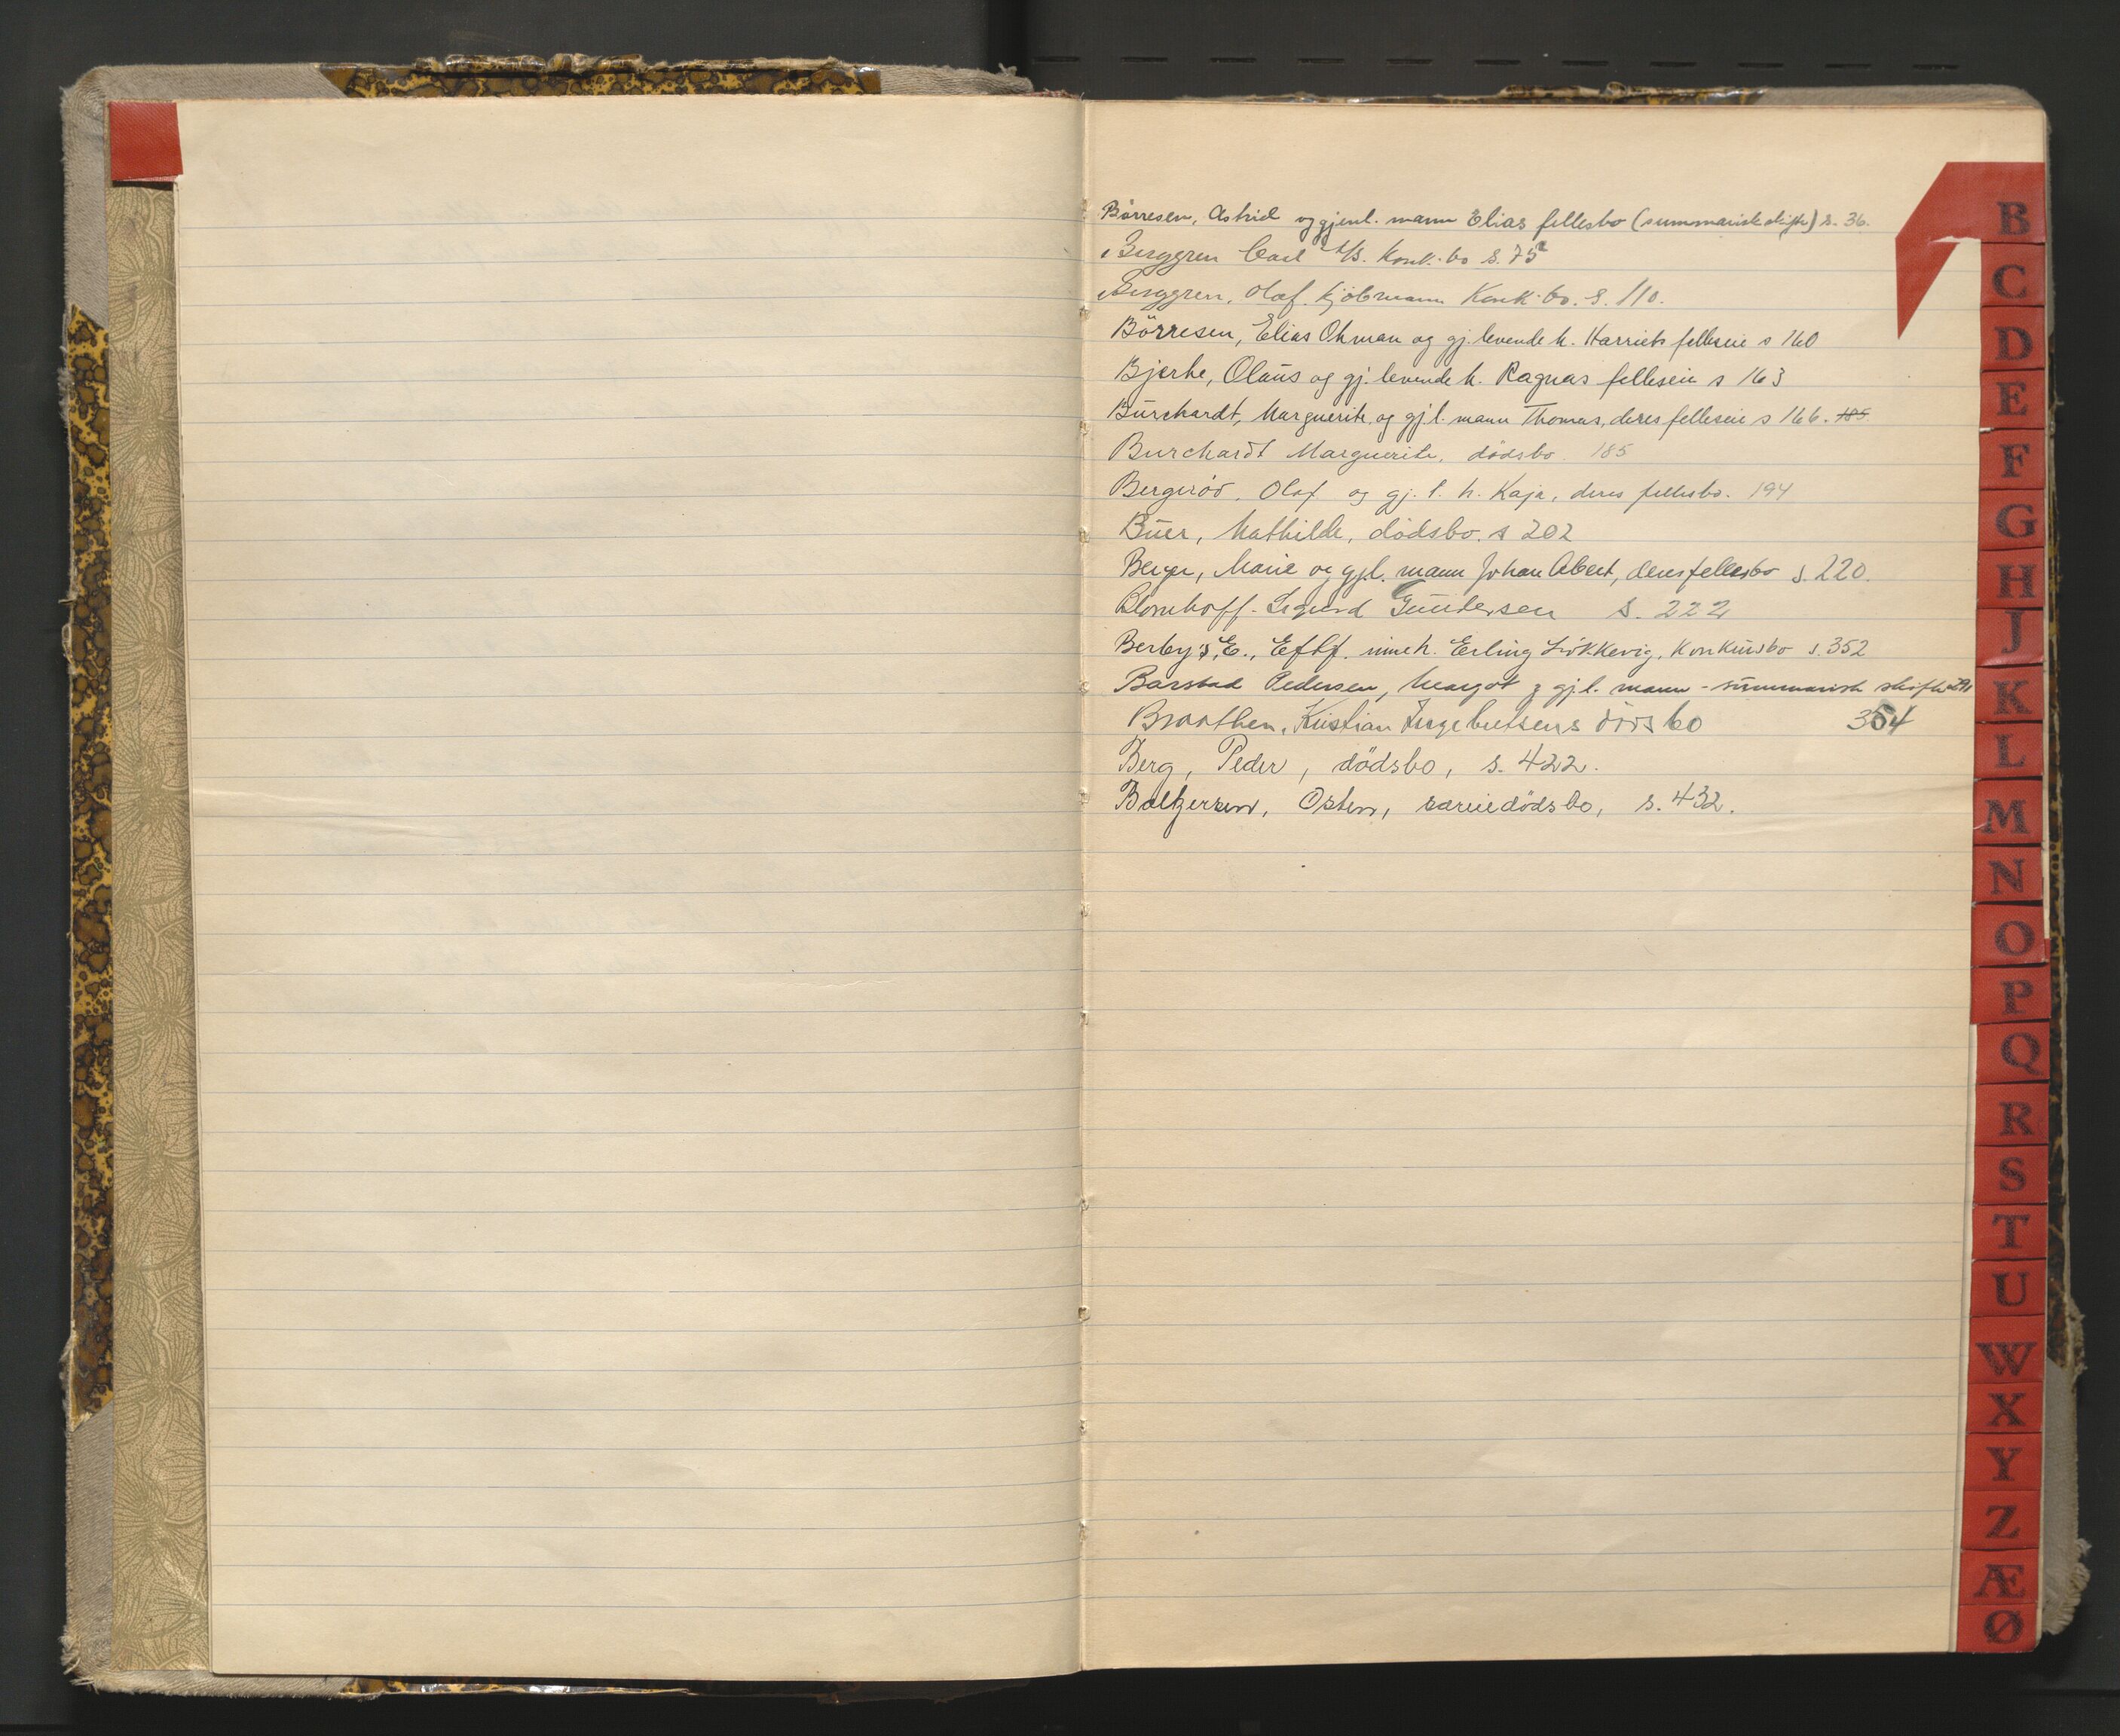 Börresen, Astrid og gjenl. mann Elias fellesbo (summarisk skifte) s. 36.
Berggren Carl A/S. Konk.bo s. 75
Berggren, Olaf. kjöbmann Konk.bo. s. 110.
Börresen, Elias Ohman og gj. levende h. Harriets felleseie s 160
Bjerke, Olaus og gj. levende h. Ragnas felleseie s 163
Burchardt, Marguerite, og gj.l. mann Thomas, deres felleseie s 166. 185
Burchardt Marguerite, dödsbo. 185
Bergeröd, Olaf og gj. l. h. Kaja, deres fellesbo. 194
Buer, Mathilde, dödsbo. s 202
Berger, Marie og gjl. mann Johan Albert, deres fellesbo s. 220.
Blomhoff. Sigurd Gundersen s. 222
Berby's, E., Eftf. inneh. Erling Lökkevig, Konkursbo s. 352
Barstad Pedersen, Margot & gj.l. mann - summarisk skifte
Braathen, Kristian Ingebretsens dödsbo 354
Berg, Peder, dödsbo, s. 422.
Baltzersen, Osten, særeiedödsbo, s. 432.
B
C
D
E
F
G
H
J
K
L
M
N
O
P
Q
R
S
T
U
W
X
Y
Z
Æ
Ø